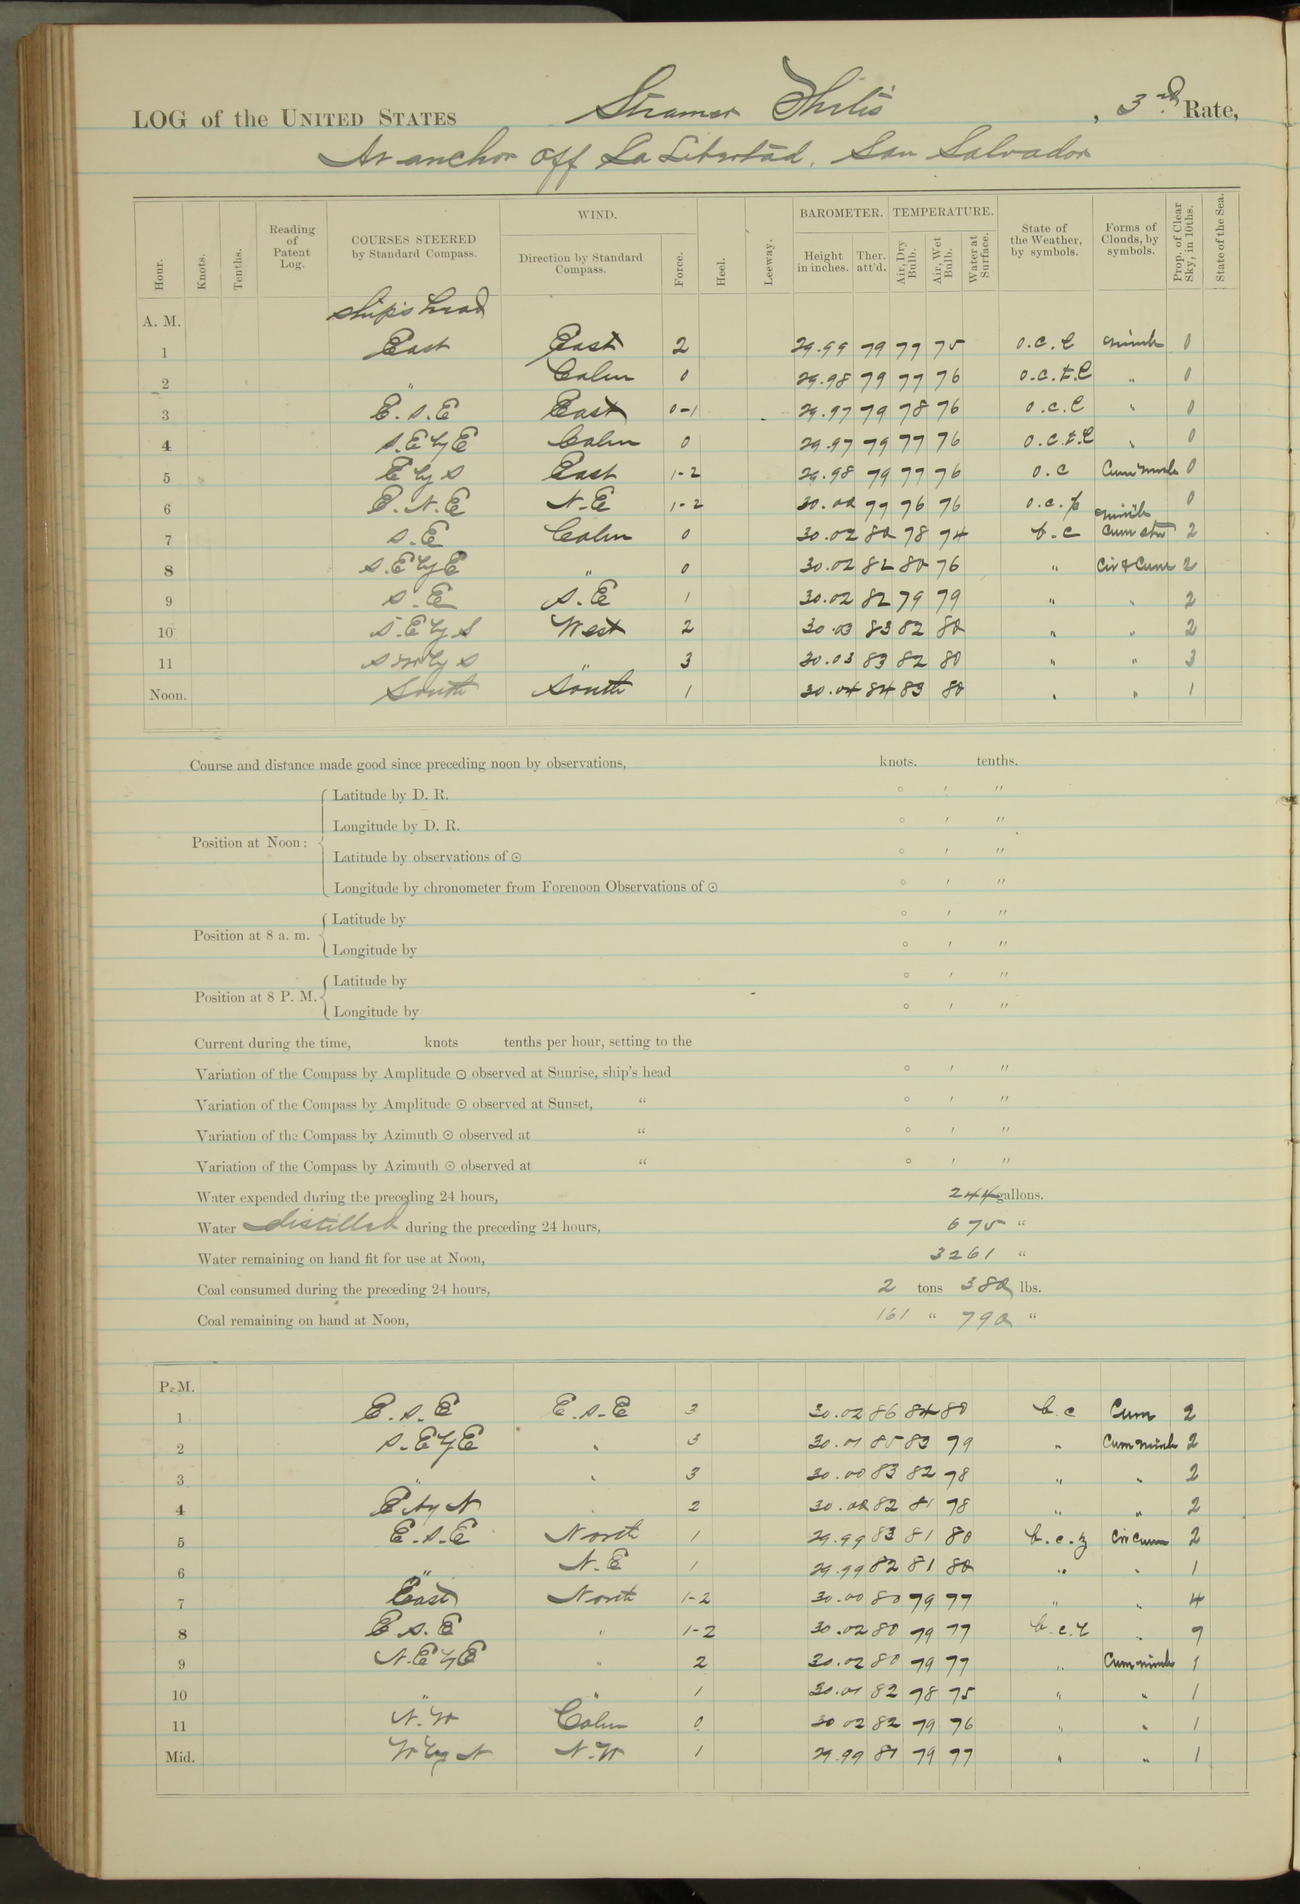 LOG of the UNITED STATES Steamer Thetis, 3rd Rate,
At anchor off La Libertad, San Salvador
Hour. Knots. Tenths. Reading of Patent Log. COURSES STEERED by Standard Compass. WIND. Direction by Standard Compass. Force. Heel. Leeway. BAROMETER. Height in inches. Ther. att'd. TEMPERATURE. Air, Dry Bulb. Air, Wet Bulb. Water at Surface. State of the Weather, by symbols. Forms of Clouds, by symbols. Prop. of Clear Sky, in 10ths. State of the Sea.
A. M. ship's head
1 East East 2 29.99 79 77 75 o.c.l nimb 0
2 " Calm 0 29.98 79 77 76 o.c.t.l " 0
3 E.S.E East 0-1 29.97 79 78 76 o.c.l " 0
4 S.E by E Calm 0 29.97 79 77 76 o.c.t.l " 0
5 E by S East 1-2 29.98 79 77 76 o.c Cum nimb 0
6 E.N.E N.E 1-2 30.00 79 76 76 o.c.p nimb 0
7 S.E Calm 0 30.02 80 78 74 b.c Cum str 2
8 S.E by E " 0 30.02 82 80 76 " Cir & Cum 2
9 S.E S.E 1 30.02 82 79 79 " " 2
10 S.E by S West 2 30.03 83 82 80 " " 2
11 SW by S " 3 30.03 83 82 80 " " 3
Noon. South South 1 30.04 84 83 80 " " 1
Course and distance made good since preceding noon by observations, knots. tenths.
Position at Noon: Latitude by D. R. ° ′ ″
Longitude by D. R. ° ′ ″
Latitude by observations of ⊙ ° ′ ″
Longitude by chronometer from Forenoon Observations of ⊙ ° ′ ″
Position at 8 a. m. Latitude by ° ′ ″
Longitude by ° ′ ″
Position at 8 P. M. Latitude by ° ′ ″
Longitude by ° ′ ″
Current during the time, knots tenths per hour, setting to the
Variation of the Compass by Amplitude ⊙ observed at Sunrise, ship's head ° ′ ″
Variation of the Compass by Amplitude ⊙ observed at Sunset, " ° ′ ″
Variation of the Compass by Azimuth ⊙ observed at " ° ′ ″
Variation of the Compass by Azimuth ⊙ observed at " ° ′ ″
Water expended during the preceding 24 hours, 244 gallons.
Water distilled during the preceding 24 hours, 675 "
Water remaining on hand fit for use at Noon, 3261 "
Coal consumed during the preceding 24 hours, 2 tons 380 lbs.
Coal remaining on hand at Noon, 161 " 790 "
P. M.
1 E.S.E E.S.E 3 30.02 86 84 80 b.c Cum 2
2 S.E by E " 3 30.01 85 83 79 " Cum nimb 2
3 " " 3 30.00 83 82 78 " " 2
4 E by N " 2 30.00 82 81 78 " " 2
5 E.S.E North 1 29.99 83 81 80 b.c.z Cir Cum 2
6 " N.E 1 29.99 82 81 80 " " 1
7 East North 1-2 30.00 80 79 77 " " 4
8 E.S.E " 1-2 30.02 80 79 77 b.c.l " 7
9 N.E by E " 2 30.02 80 79 77 " Cum nimb 1
10 " " 1 30.01 82 78 75 " " 1
11 N.W Calm 0 30 02 82 79 76 " " 1
Mid. W by N N.W 1 29.99 81 79 77 " " 1